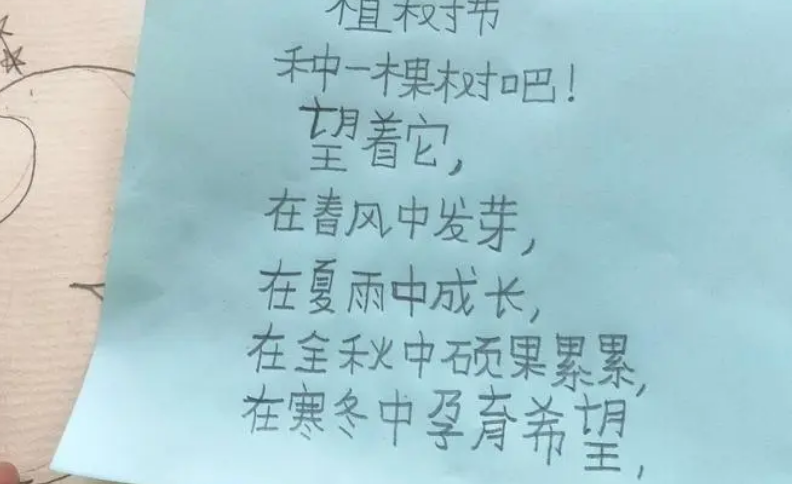 植树节
种一棵树吧！
望着它，
在春风中发芽，
在夏雨中成长，
在全秋中硕果累累，
在寒冬中孕育希望，